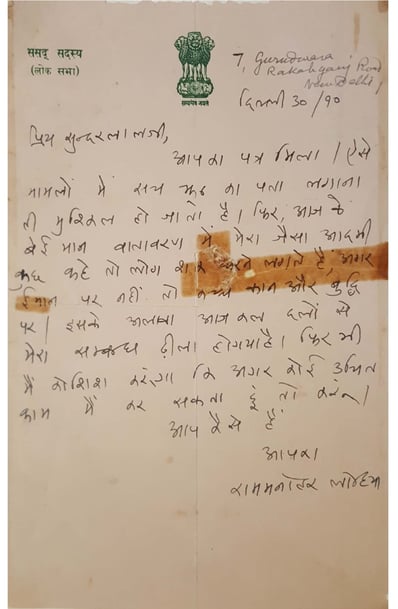 संसद् सदस्य
(लोक सभा)
सत्यमेव जयते
7, Gurudwara
Rakabganj Road
New Delhi
दिल्ली 30/१०
प्रिय सुन्दरलालजी,
आपका पत्र मिला। ऐसे
मामलों में सच झूठ का पता लगाना
ही मुश्किल हो जाता है। फिर, आज के
बेईमान वातावरण में मेरा जैसा आदमी
कुछ कहे तो लोग शक करने लगते हैं, अगर
ईमान पर नहीं तो कच्चे कान और बुद्धि
पर। इसके अलावा आजकल दलों से
मेरा सम्बन्ध ढीला होगया है। फिर भी
मैं कोशिश करूंगा कि अगर कोई उचित
काम मैं कर सकता हूं तो करूं।
आप कैसे हैं
आपका
राममनोहर लोहिया